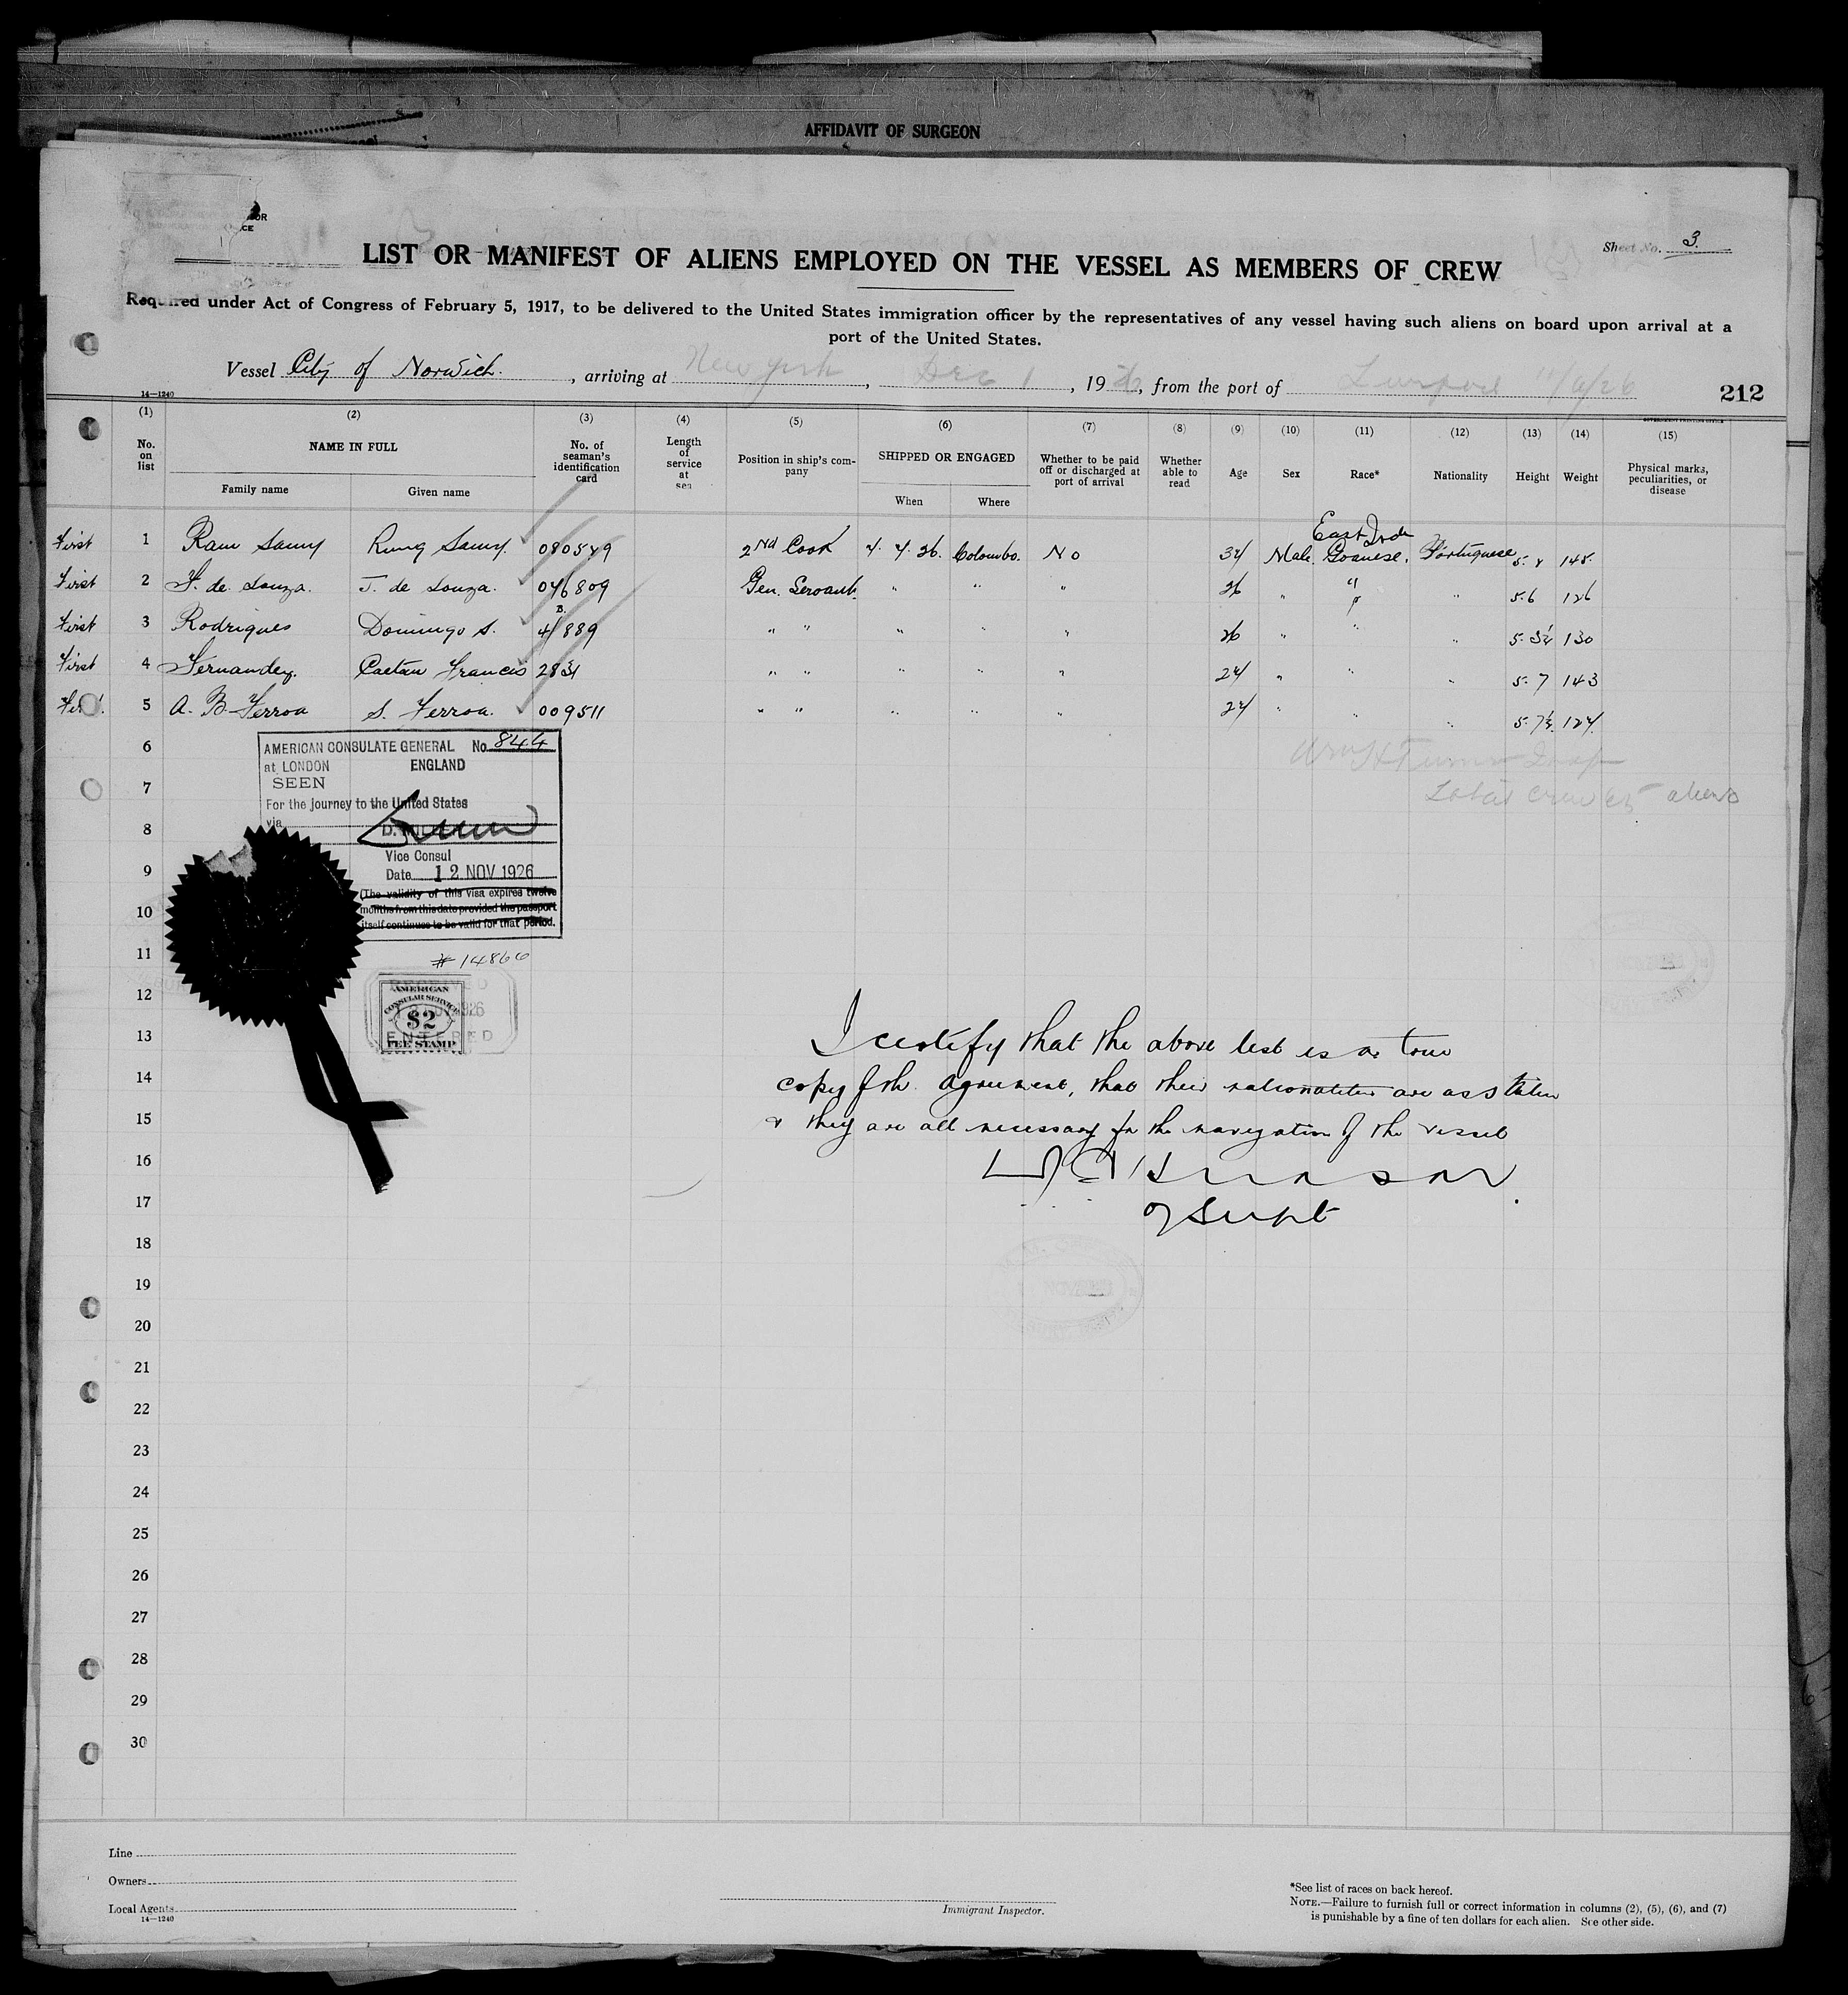 AFFIDAVIT OF SURGEON
Sheet No. 3.
LIST OR MANIFEST OF ALIENS EMPLOYED ON THE VESSEL AS MEMBERS OF CREW
Required under Act of Congress of February 5, 1917, to be delivered to the United States immigration officer by the representatives of any vessel having such aliens on board upon arrival at a
port of the United States.
Vessel City of Norwich. , arriving at New York , Dec 1 , 1926, from the port of Liverpool
212
14—1240
(1) (2) (3) (4) (5) (6) (7) (8) (9) (10) (11) (12) (13) (14) (15)
No. on list NAME IN FULL No. of seaman's identification card Length of service at sea Position in ship's company SHIPPED OR ENGAGED Whether to be paid off or discharged at port of arrival Whether able to read Age Sex Race* Nationality Height Weight Physical marks, peculiarities, or disease
Family name Given name When Where
East Inde
First 1 Ram Samy Rung Samy. 080549 2nd Cook 4. 4. 26. Colombo. No 34 Male. Goanese. Portuguese 148.
First 2 F. de Souza. J. de Souza. 046809 Gen. Servant. " " " 26 " " " 5.6 126
B.
First 3 Rodrigues Domingo S. 41889 " " " " " 26 " " " 130
First 4 Fernandez. Caetan Francis 2831 " " " " " 24 " " " 5.7 143
5 A. B. Ferroa S. Ferroa. 009511 " " " " " 24 " " " 5.7½ 124.
6
7
Total crew 65 aliens
8
9
10
11
12
13
14
15
16
17
18
19
20
21
22
23
24
25
26
27
28
29
30
AMERICAN CONSULATE GENERAL No. 844
at LONDON ENGLAND
SEEN
For the journey to the United States
via
Vice Consul
Date 12 NOV 1926
(The validity of this visa expires twelve
months from this date provided the passport
itself continues to be valid for that period.
# 14866
AMERICAN
CONSULAR SERVICE
$2
FEE STAMP
I certify that the above list is a true
copy of the agreement, that their nationalities are as stated
& they are all necessary for the navigation of the vessel
Line
Owners
Local Agents
14—1240
Immigrant Inspector.
*See list of races on back hereof.
NOTE.—Failure to furnish full or correct information in columns (2), (5), (6), and (7)
is punishable by a fine of ten dollars for each alien. See other side.